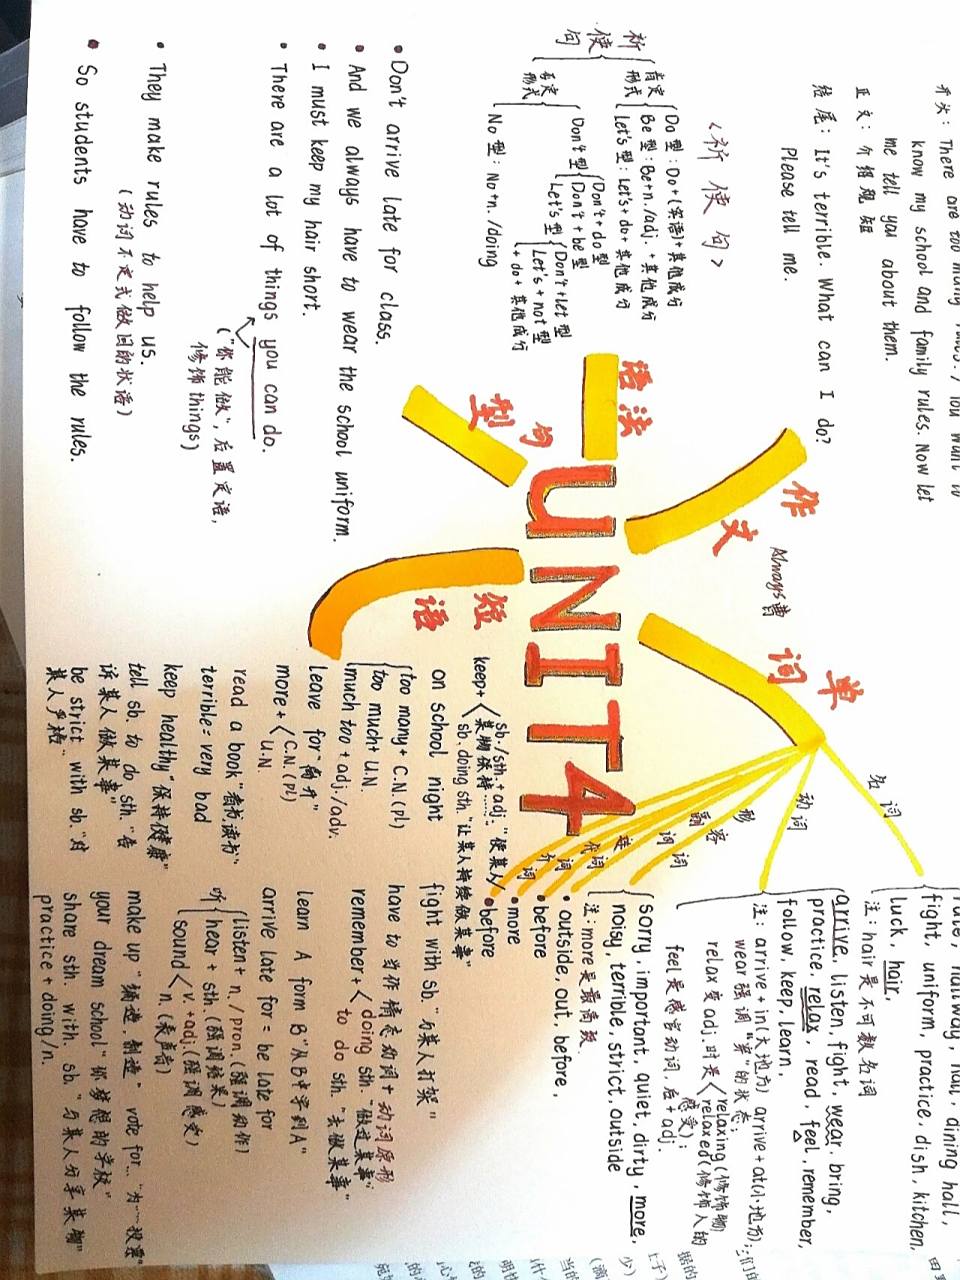 UNIT 4
作文
开头: There are too many rules. / You want to
know my school and family rules. Now let
me tell you about them.
正文: 介绍规矩
结尾: It's terrible. What can I do?
Please tell me.
语法
<祈使句>
祈使句
肯定形式
Do 型: Do+(宾语)+其他成分
Be 型: Be+n./adj.+其他成分
Let's 型: Let's+do+其他成分
否定形式
Don't 型
Don't+do 型
Don't+be 型
Let's 型
Don't+let 型
Let's+not 型
+do+其他成分
No 型: No+n./doing
句型
• Don't arrive late for class.
• And we always have to wear the school uniform.
• I must keep my hair short.
• There are a lot of things you can do.
("你能做", 后置定语,
修饰things)
• They make rules to help us.
(动词不定式做目的状语)
• So students have to follow the rules.
单词
名词
hallway, hall, dining hall,
fight, uniform, practice, dish, kitchen,
luck, hair,
注: hair是不可数名词
动词
arrive, listen, fight, wear, bring,
practice, relax, read, feel, remember,
follow, keep, learn.
注: arrive+in(大地方) arrive+at(小地方);
wear强调"穿"的状态;
relax变adj.时是
relaxing(修饰物)
relaxed(修饰人的
感受);
feel是感官动词, 后+adj.
形容词
sorry, important, quiet, dirty, more,
noisy, terrible, strict, outside
注: more是最高级.
副词
• outside, out, before,
连词
• before
代词
• more
介词
• before
Always曹
短语
keep+
sb./sth.+adj: "使某人/
某物保持……"
sb. doing sth. "让某人持续做某事"
on school night
too many+C.N.(pl)
too much+U.N.
much too+adj./adv.
leave for "离开"
more+
C.N.(pl)
U.N.
read a book "看书读书"
terrible=very bad
keep healthy "保持健康"
tell sb. to do sth. "告
诉某人做某事"
be strict with sb. "对
某人严格"
fight with sb. "与某人打架"
have to 当作情态动词+动词原形
remember+
doing sth. "做过某事"
to do sth. "去做某事"
learn A form B "从B中学到A"
arrive late for = be late for
听
listen+n./pron.(强调动作)
hear+sth.(强调结果)
sound
v.+adj.(强调感受)
n.(表声音)
make up "编造, 制造" vote for... "为……投票"
your dream school "你梦想的学校"
share sth. with. sb. "与某人分享某物"
practice+doing/n.